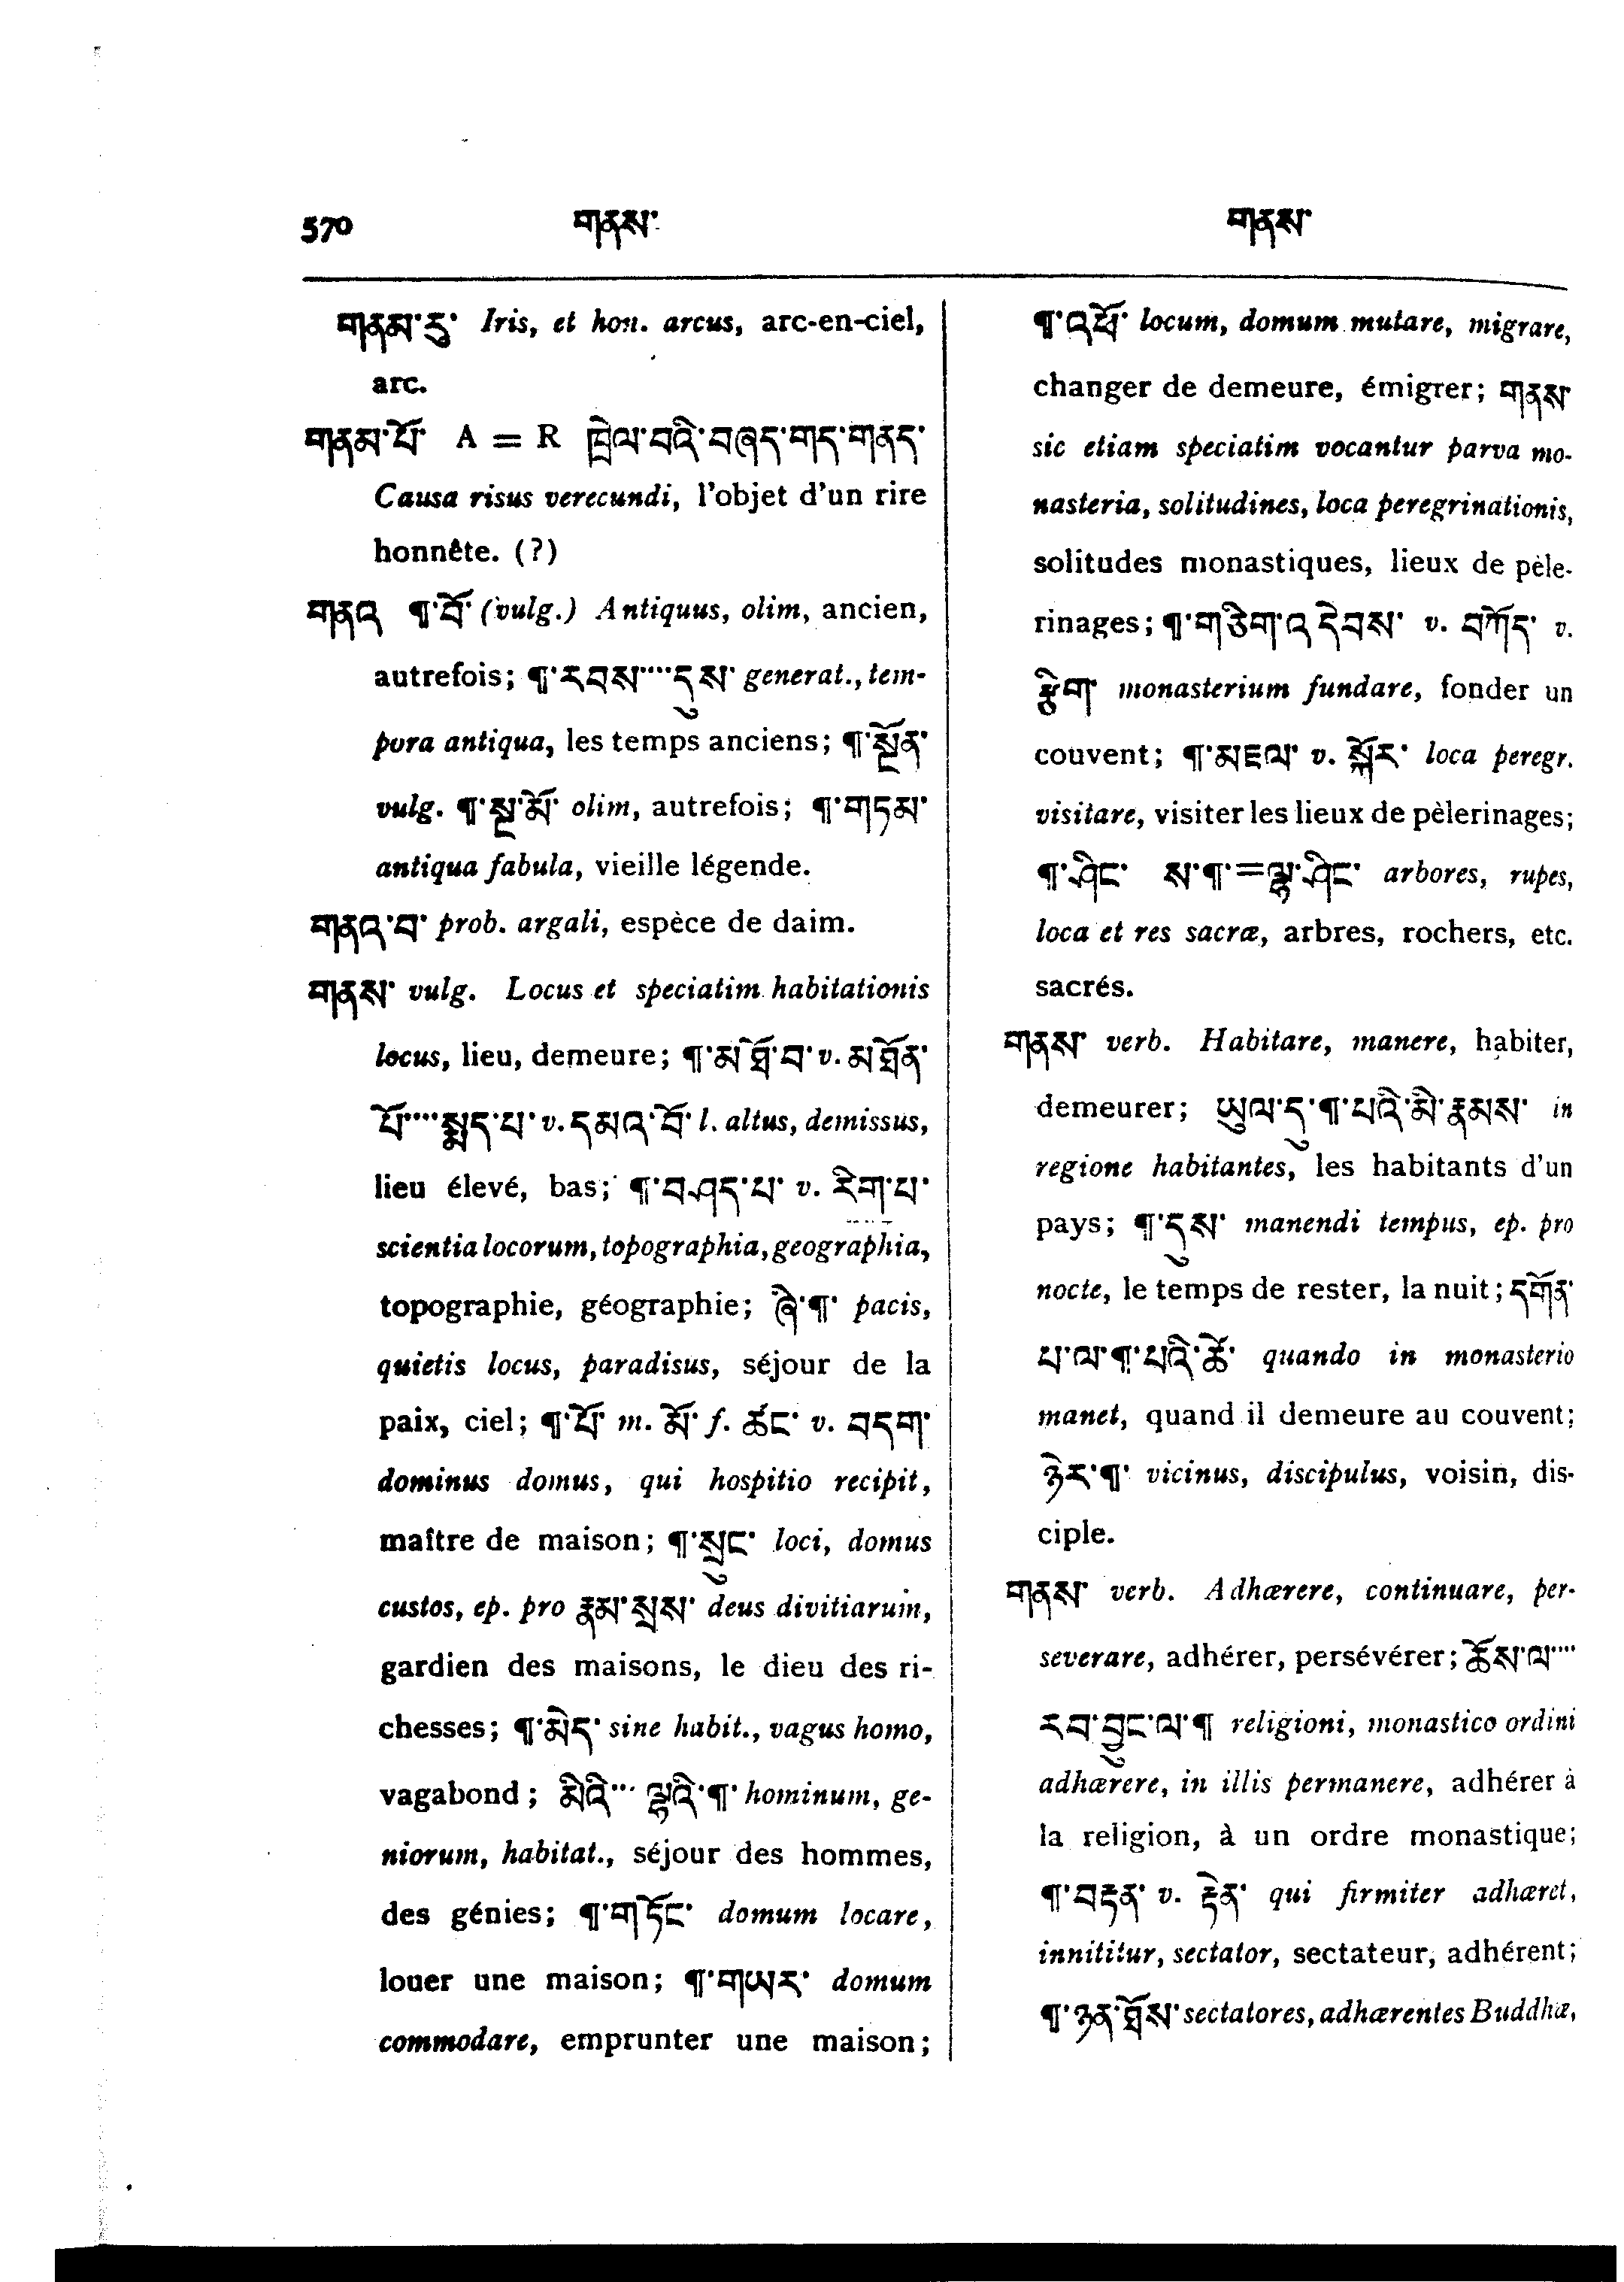 570 གནས་ གནས་
གནམ་རུ་ Iris, et hon. arcus, arc-en-ciel,
arc.
གནམ་པོ་ A = R ཁྲེལ་བའི་བཞད་གད་གནད་
Causa risus verecundi, l'objet d'un rire
honnête. (?)
གནའ ¶་བོ་ (vulg.) Antiquus, olim, ancien,
autrefois; ¶་རབས་····དུས་ generat., tem-
pora antiqua, les temps anciens; ¶་སྔོན་
vulg. ¶་སྔ་མོ་ olim, autrefois; ¶་གཏམ་
antiqua fabula, vieille légende.
གནའ་བ་ prob. argali, espèce de daim.
གནས་ vulg. Locus et speciatim habitationis
locus, lieu, demeure; ¶་མཐོ་བ་ v. མཐོན་
པོ་····སྨད་པ་ v. དམའ་བོ་ l. altus, demissus,
lieu élevé, bas; ¶་བཤད་པ་ v. རིག་པ་
scientia locorum, topographia, geographia,
topographie, géographie; ཞི་¶་ pacis,
quietis locus, paradisus, séjour de la
paix, ciel; ¶་པོ་ m. མོ་ f. ཚང་ v. བདག་
dominus domus, qui hospitio recipit,
maître de maison; ¶་སྲུང་ loci, domus
custos, ep. pro རྣམ་སྲས་ deus divitiarum,
gardien des maisons, le dieu des ri-
chesses; ¶་མེད་ sine habit., vagus homo,
vagabond; མིའི་··· ལྷའི་¶་ hominum, ge-
niorum, habitat., séjour des hommes,
des génies; ¶་གཏོང་ domum locare,
louer une maison; ¶་གཡར་ domum
commodare, emprunter une maison;
¶་འཕོ་ locum, domum mutare, migrare,
changer de demeure, émigrer; གནས་
sic etiam speciatim vocantur parva mo-
nasteria, solitudines, loca peregrinationis,
solitudes monastiques, lieux de pèle-
rinages; ¶་གཅིག་འདེབས་ v. བཀོད་ v.
རྩིག་ monasterium fundare, fonder un
couvent; ¶་མཇལ་ v. སྐོར་ loca peregr.
visitare, visiter les lieux de pèlerinages;
¶་ཤིང་ ས་¶་=ལྷ་ཤིང་ arbores, rupes,
loca et res sacræ, arbres, rochers, etc.
sacrés.
གནས་ verb. Habitare, manere, habiter,
demeurer; ཡུལ་དུ་¶་པའི་མི་རྣམས་ in
regione habitantes, les habitants d'un
pays; ¶་དུས་ manendi tempus, ep. pro
nocte, le temps de rester, la nuit; དགོན་
པ་ལ་¶་པའི་ཚེ་ quando in monasterio
manet, quand il demeure au couvent;
ཉེར་¶་ vicinus, discipulus, voisin, dis-
ciple.
གནས་ verb. Adhærere, continuare, per-
severare, adhérer, persévérer; ཆོས་ལ་····
རབ་བྱུང་ལ་¶ religioni, monastico ordini
adhærere, in illis permanere, adhérer à
la religion, à un ordre monastique;
¶་བརྟན་ v. རྟེན་ qui firmiter adhæret,
innititur, sectator, sectateur, adhérent;
¶་ཉན་ཐོས་ sectatores, adhærentes Buddhæ,